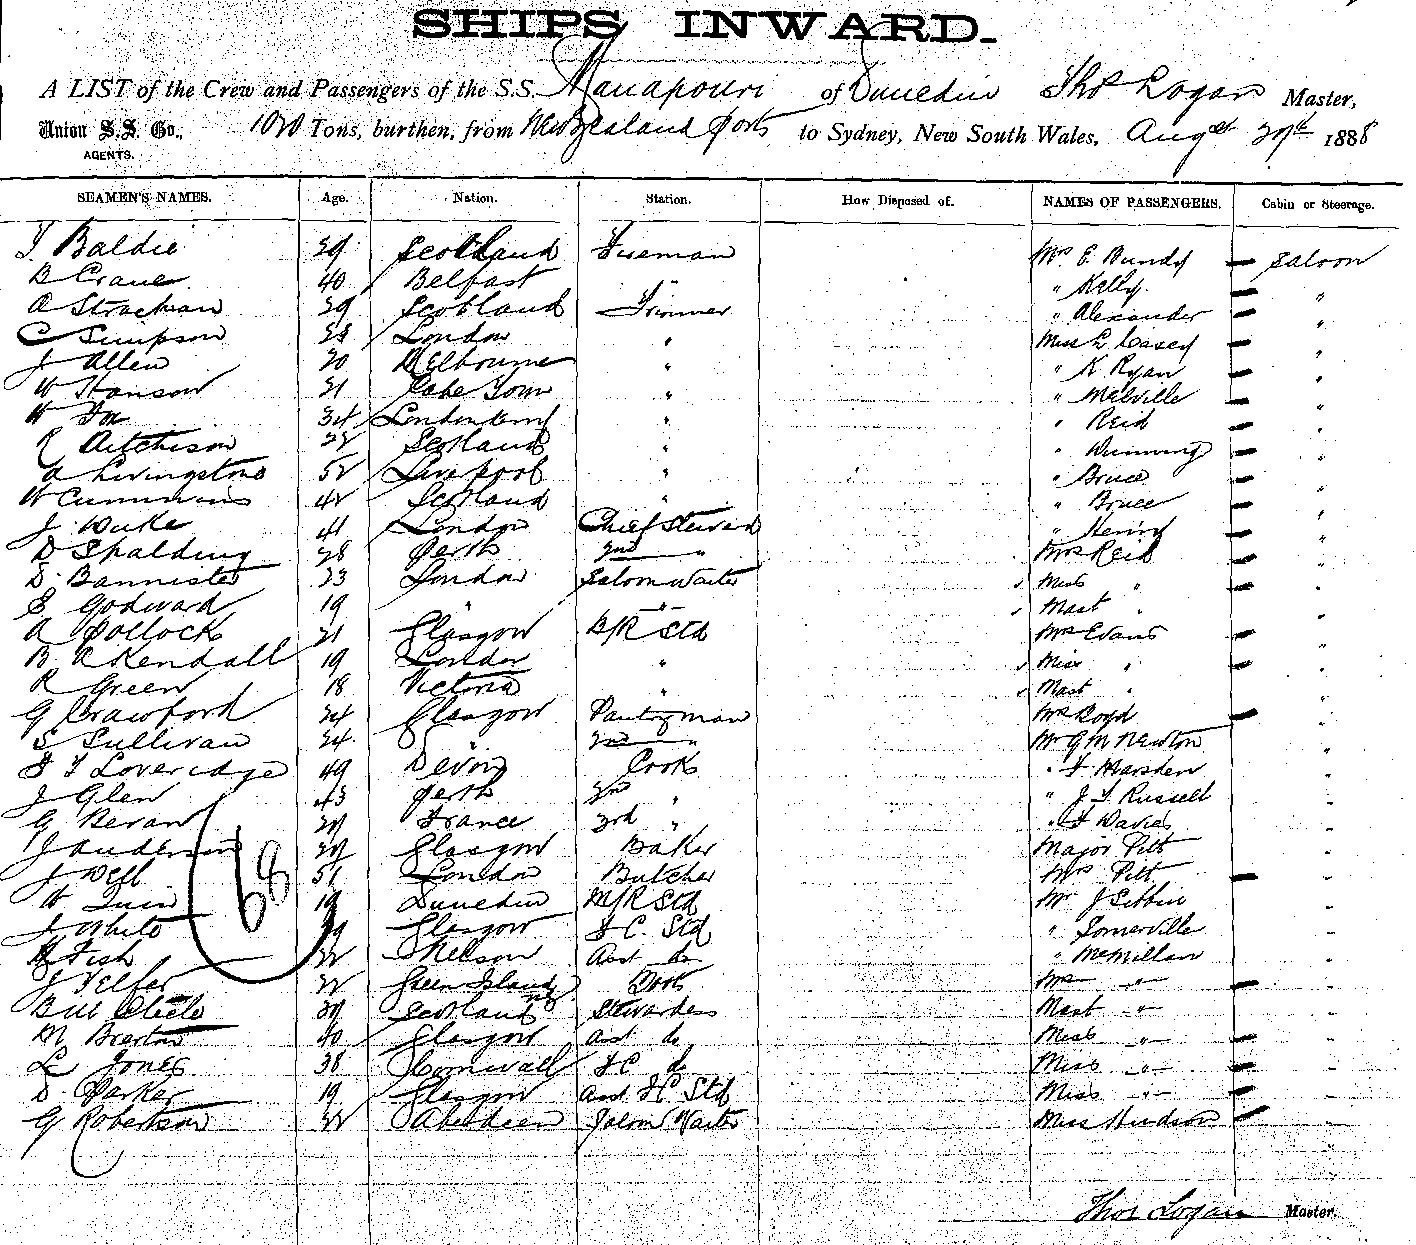 SHIPS INWARD.
A LIST of the Crew and Passengers of the S.S. Manapouri of Dunedin Thos Logan Master,
Union S.S. Co., 1020 Tons, burthen, from New Zealand Ports to Sydney, New South Wales, Augst 29th 1888
AGENTS.
SEAMEN'S NAMES. Age. Nation. Station. How Disposed of. NAMES OF PASSENGERS. Cabin or Steerage.
Baldie 29 Scotland Fireman Mrs E. Bundy — Saloon
B Crane 40 Belfast " " Kelly — "
A Strachan 29 Scotland Trimmer " Alexander — "
C Simpson 23 London " Miss E Casey — "
J Allen 20 Melbourne " " K Ryan — "
W Hanson 21 Cape Town " " Melville — "
W Fox 34 Londonderry " " Reid — "
R Aitchison 22 Scotland " " Dunning — "
A Livingstone 52 Liverpool " " Bruce — "
W Cummins 42 Scotland " " Bruce — "
J Duke 41 London Chief Steward " Henry — "
D Spalding 28 Perth 2nd " Mrs Reid — "
D. Bannister 23 London Saloon Waiter Miss " — "
E Godward 19 " " Mast " "
A Pollock 21 Glasgow B/R Std Mrs Evans — "
B R Kendall 19 London " Miss " — "
R Green 18 Victoria " Mast " "
G Crawford 24 Glasgow Pantryman Mrs Boyd — "
S Sullivan 24 " 2nd " Mr G M Newton "
F T Loveridge 49 Devon Cook " F Marsden "
J Glen 43 Perth 2nd " " J T Russell "
G Bevan France 3rd " " F Davies "
J Anderson Glasgow Baker Major Pitt "
J Dell 51 London Butcher Mrs Pitt — "
W 19 Dunedin M/R Std Mr J "
J White Glasgow F C. Std " Somerville "
H Fish 22 Nelson Asst do " McMillan "
J Telfer 22 Green Island NZ Mrs " — "
Steele 39 Scotland Stewardess Mast " "
M 40 Glasgow Asst do Miss " — "
L Jones 38 Cornwall F C do Miss " — "
D. Parker 19 Glasgow Asst F C Std Miss " — "
G Robertson 22 Aberdeen Saloon Waiter Miss Hudson — "
68
Thos Logan Master.